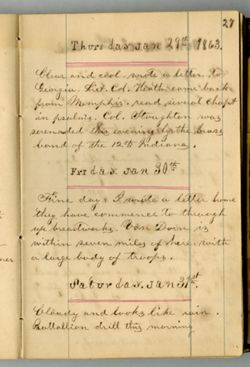 27
Thursday, Jan 29th 1863.
Clear and cool. wrote a letter to
Georgia. Lit. Col. Heath came back
from Memphis. read several chapt
in psalms. Col. Stoughton was
serenaded this evening by the brass
band of the 12th Indiana.
Friday. Jan 30th
Fine day. I wrote a letter home
they have commence to through
up breastworks. Van Dorn is
within seven miles of here with
a large body of troops.
Saturday. Jan 31st.
Cloudy and looks like rain.
Battallion drill this morning